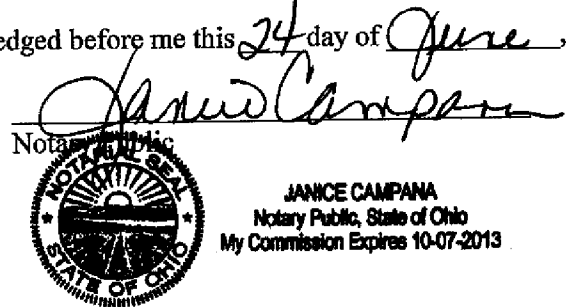 edged before me this 24 day of June,
Janice Campana
Notary Public
NOTARIAL SEAL
STATE OF OHIO
JANICE CAMPANA
Notary Public, State of Ohio
My Commission Expires 10-07-2013